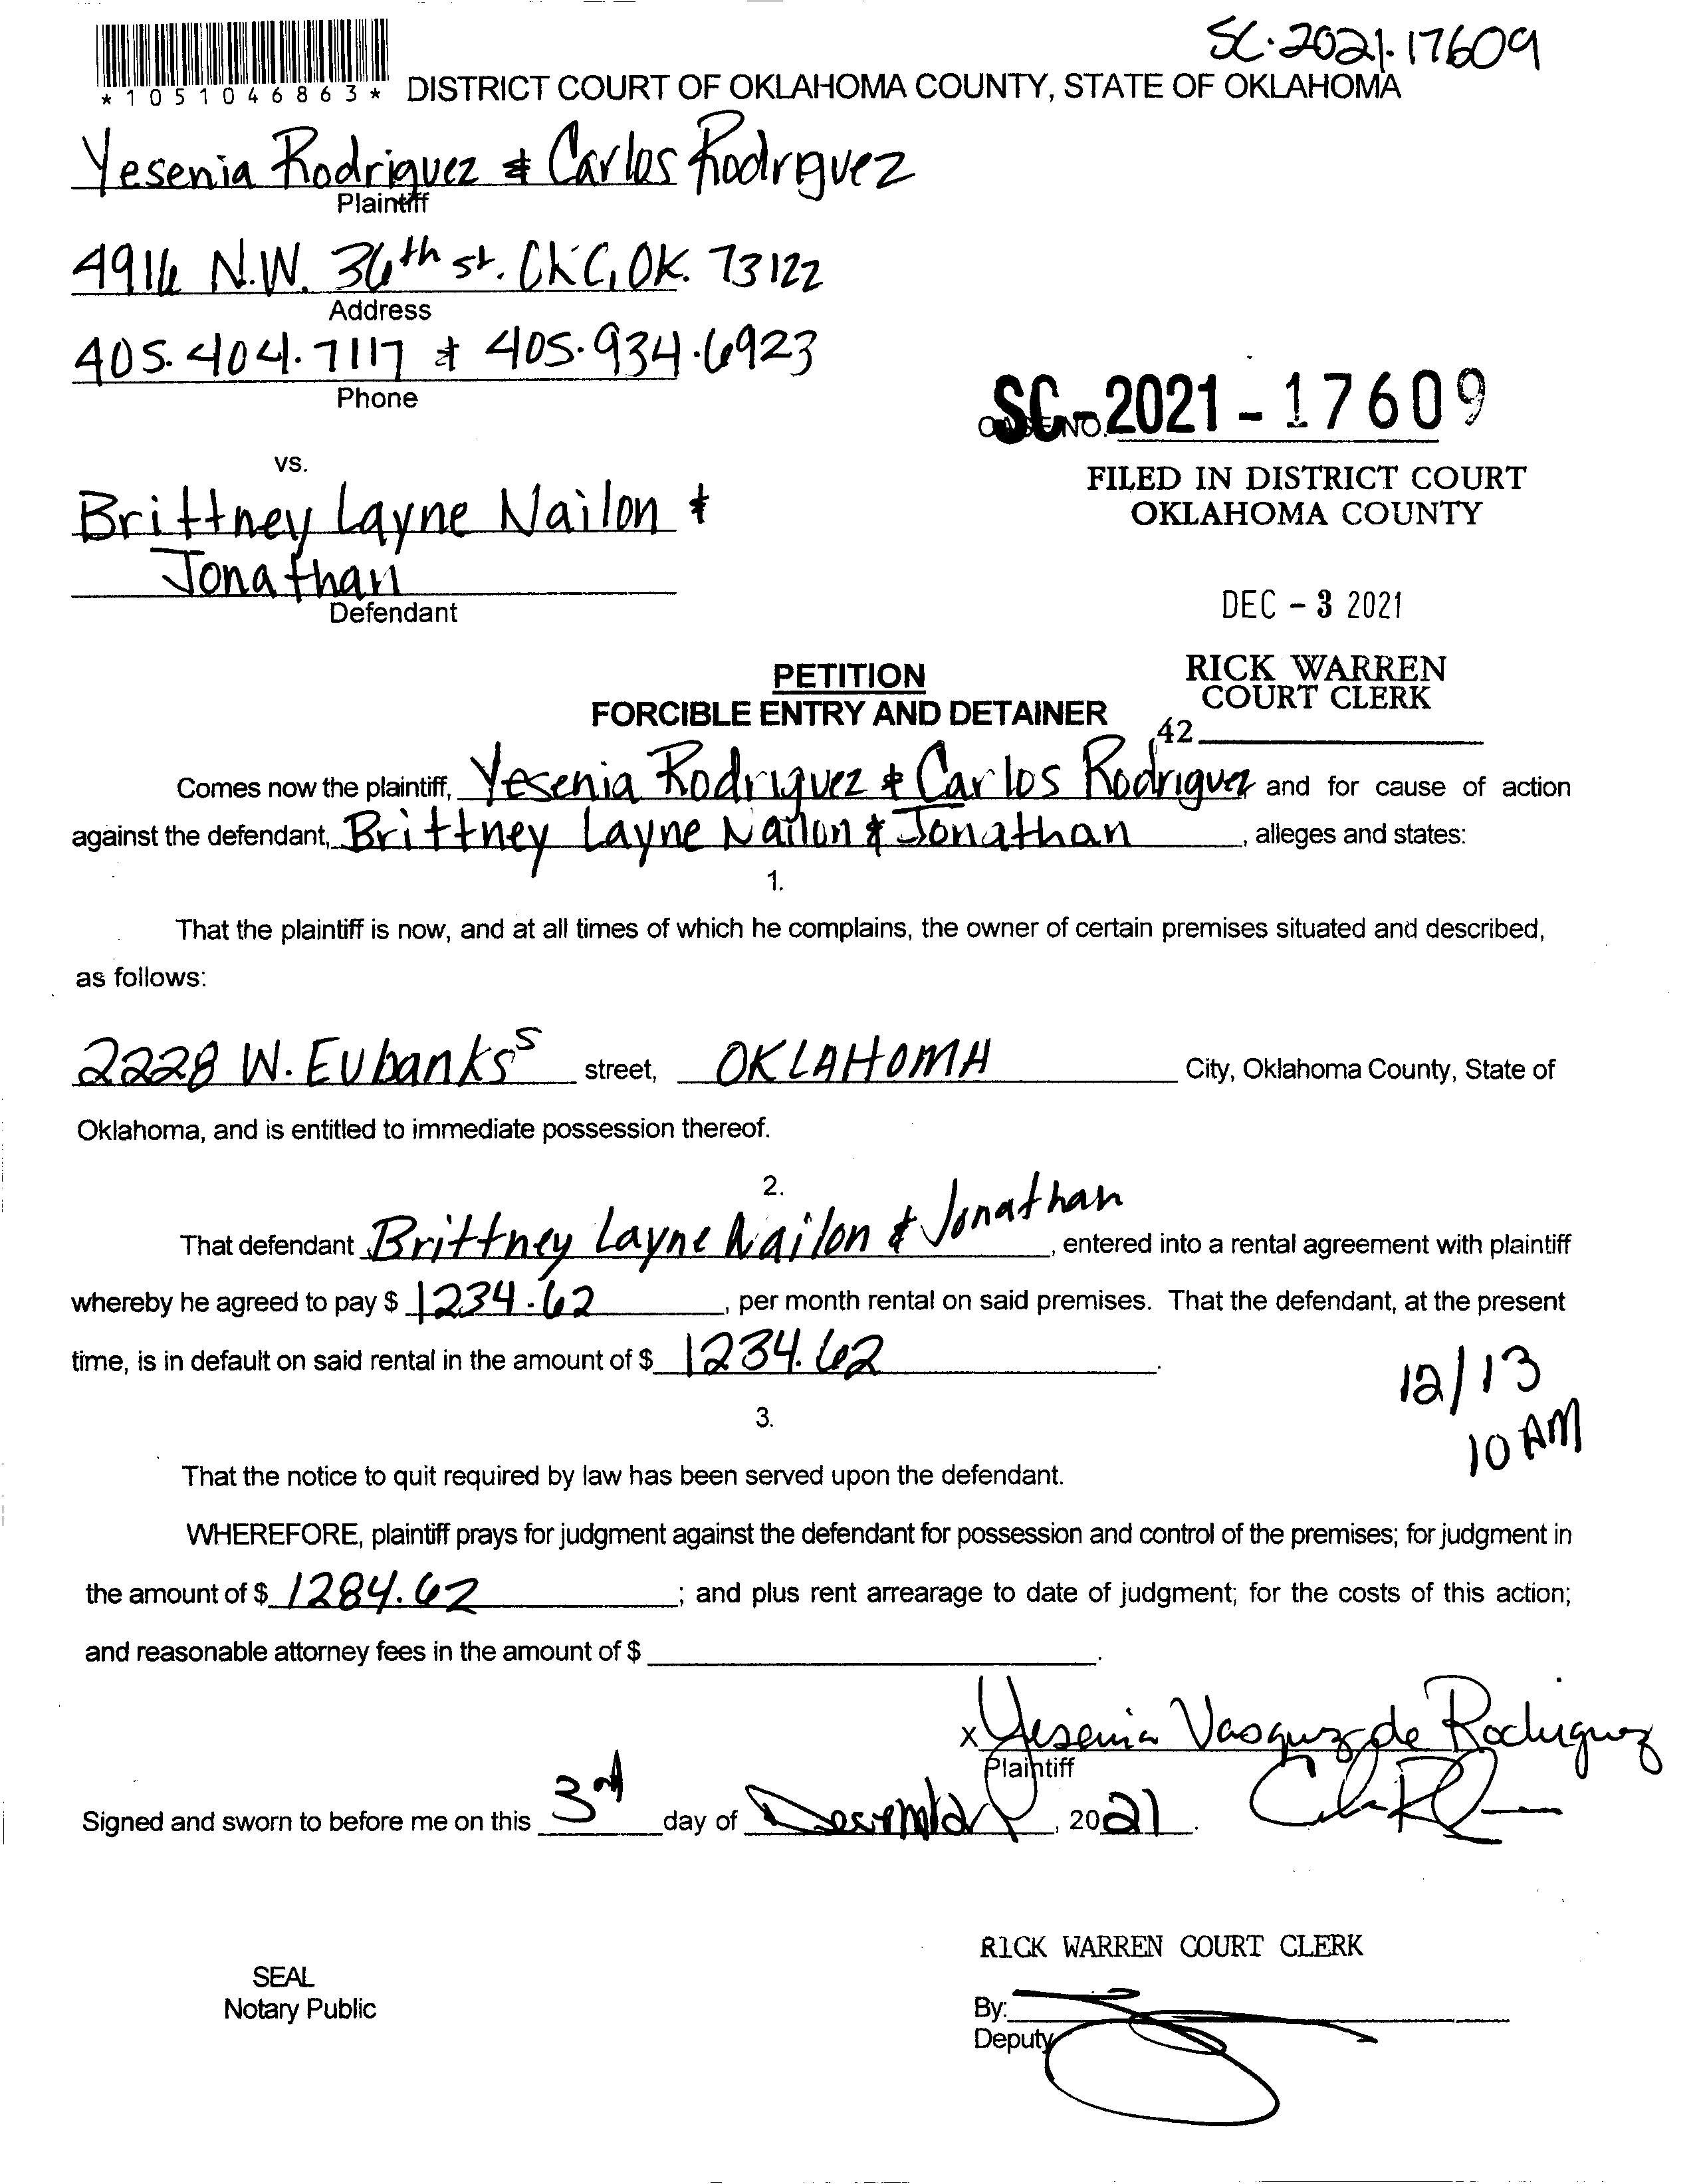 SC-2021-17609
*1051046863* DISTRICT COURT OF OKLAHOMA COUNTY, STATE OF OKLAHOMA
Yesenia Rodriguez & Carlos Rodrguez
Plaintiff
4916 N.W. 36th st. OKC, OK. 73122
Address
405.404.7117 & 405.934.6923
Phone
SC-2021-17609
CASE NO.
vs.
FILED IN DISTRICT COURT
OKLAHOMA COUNTY
Brittney Layne Nailon &
Jonathan
Defendant
DEC - 3 2021
RICK WARREN
COURT CLERK
42
PETITION
FORCIBLE ENTRY AND DETAINER
Comes now the plaintiff, Yesenia Rodriguez & Carlos Rodriguez and for cause of action
against the defendant, Brittney Layne Nailon & Jonathan, alleges and states:
1.
That the plaintiff is now, and at all times of which he complains, the owner of certain premises situated and described,
as follows:
2228 W. Eubanks S street, OKLAHOMA City, Oklahoma County, State of
Oklahoma, and is entitled to immediate possession thereof.
2.
That defendant Brittney Layne Nailon & Jonathan, entered into a rental agreement with plaintiff
whereby he agreed to pay $ 1234.62, per month rental on said premises. That the defendant, at the present
time, is in default on said rental in the amount of $ 1234.62.
12/13
10 AM
3.
That the notice to quit required by law has been served upon the defendant.
WHEREFORE, plaintiff prays for judgment against the defendant for possession and control of the premises; for judgment in
the amount of $ 1284.62; and plus rent arrearage to date of judgment; for the costs of this action;
and reasonable attorney fees in the amount of $.
x Yesenia Vasquez de Rodriguez
Plaintiff
Signed and sworn to before me on this 3rd day of December, 2021.
RICK WARREN COURT CLERK
SEAL
Notary Public
By:
Deputy